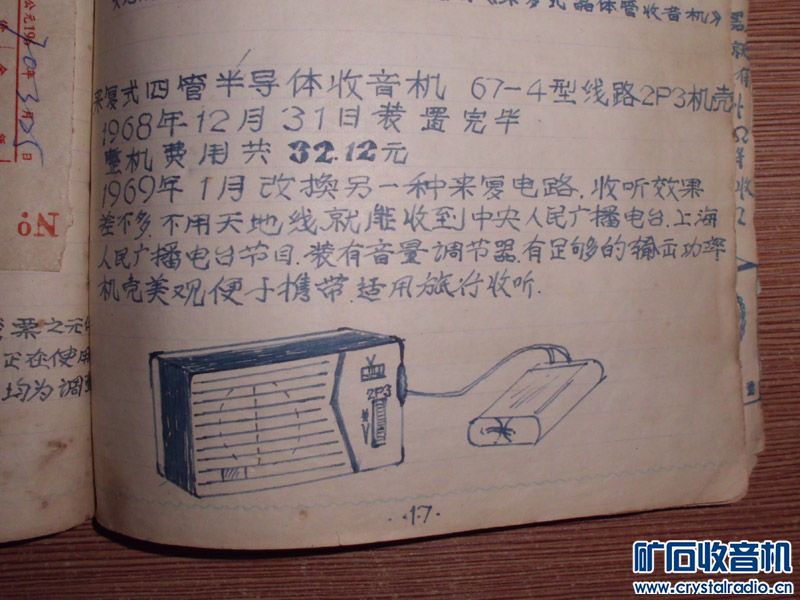 公元19
70年3月25日
No
式晶体管收音机》
来复式四管半导体收音机 67-4型线路2P3机壳
1968年12月31日装置完毕
整机费用共32.12元
1969年1月改换另一种来复电路.收听效果
差不多.不用天地线就能收到中央人民广播电台.上海
人民广播电台节目.装有音量调节器.有足够的输出功率
机壳美观便于携带.适用旅行收听.
2P3
票之元件
正在使用
均为调整
·17·
矿石收音机
www.crystalradio.cn